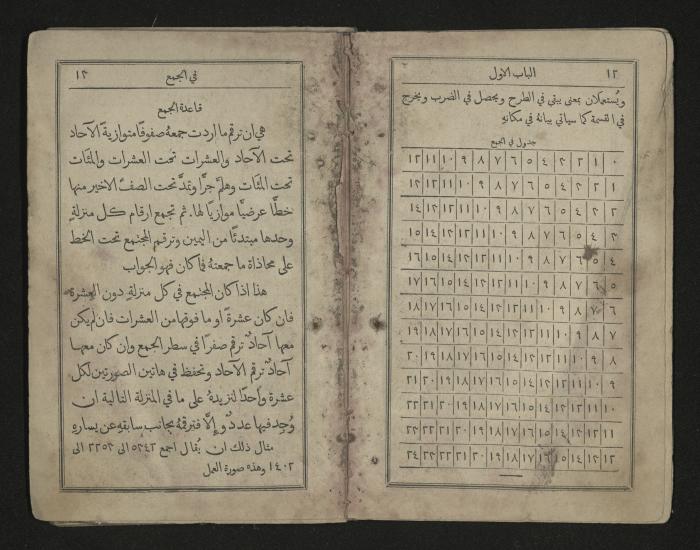 ١٢ الباب الاول
ويُستعملان بمعنى يبقى في الطرح ويحصل في الضرب ويخرج
في القسمة كما سياتي بيانهُ في مكانهِ
جدول في الجمع
٠ ١ ٢ ٣ ٤ ٥ ٦ ٧ ٨ ٩ ١٠ ١١ ١٢
١ ٢ ٣ ٤ ٥ ٦ ٧ ٨ ٩ ١٠ ١١ ١٢ ١٣
٢ ٣ ٤ ٥ ٦ ٧ ٨ ٩ ١٠ ١١ ١٢ ١٣ ١٤
٣ ٤ ٥ ٦ ٧ ٨ ٩ ١٠ ١١ ١٢ ١٣ ١٤ ١٥
٤ ٥ ٦ ٧ ٨ ٩ ١٠ ١١ ١٢ ١٣ ١٤ ١٥ ١٦
٥ ٦ ٧ ٨ ٩ ١٠ ١١ ١٢ ١٣ ١٤ ١٥ ١٦ ١٧
٦ ٧ ٨ ٩ ١٠ ١١ ١٢ ١٣ ١٤ ١٥ ١٦ ١٧ ١٨
٧ ٨ ٩ ١٠ ١١ ١٢ ١٣ ١٤ ١٥ ١٦ ١٧ ١٨ ١٩
٨ ٩ ١٠ ١١ ١٢ ١٣ ١٤ ١٥ ١٦ ١٧ ١٨ ١٩ ٢٠
٩ ١٠ ١١ ١٢ ١٣ ١٤ ١٥ ١٦ ١٧ ١٨ ١٩ ٢٠ ٢١
١٠ ١١ ١٢ ١٣ ١٤ ١٥ ١٦ ١٧ ١٨ ١٩ ٢٠ ٢١ ٢٢
١١ ١٢ ١٣ ١٤ ١٥ ١٦ ١٧ ١٨ ١٩ ٢٠ ٢١ ٢٢ ٢٣
١٢ ١٣ ١٤ ١٥ ١٦ ١٧ ١٨ ١٩ ٢٠ ٢١ ٢٢ ٢٣ ٢٤
في الجمع ١٣
قاعدة الجمع
هي ان ترقم ما اردت جمعهُ صفوفًا متوازية الآحاد
تحت الآحاد والعشرات تحت العشرات والمئات
تحت المئات وهلمَّ جرًّا وتمدَّ تحت الصفّ الاخير منها
خطًّا عرضيًّا موازيًا لها. ثم تجمع ارقام كل منزلةٍ
وحدها مبتدئًا من اليمين وترقم المجتمع تحت الخط
على محاذاة ما جمعتهُ فما كان فهو الجواب
هذا اذا كان المجتمع في كل منزلةٍ دون العشرة
فان كان عشرةً او ما فوقها من العشرات فان لم يكن
معها آحادٌ ترقم صفرًا في سطر الجمع وان كان معها
آحادٌ ترقم الآحاد وتحفظ في هاتين الصورتين لكل
عشرة واحدًا لتزيدهُ على ما في المنزلة التالية ان
وُجد فيها عددٌ والَّا فترقمهُ بجانب سابقهِ عن يسارهِ
مثال ذلك ان يُقال اجمع ٥٢٤٣ الى ٣٢٥٢ الى
١٤٠٢ وهذه صورة العمل